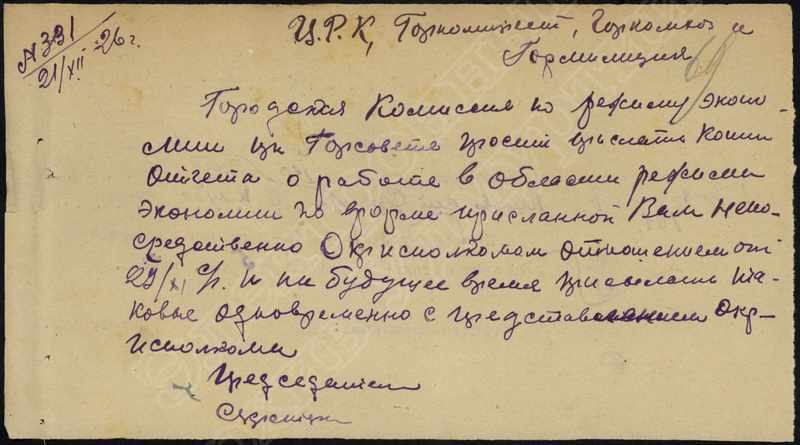 № 391
21/XII-26 г.
Ц.Р.К, Горкомхоз и
Гормилиция
69
Городская Комиссия по режиму эконо-
мии при Горсовете просит прислать копии
отчета о работе в области режима
экономии по форме присланной Вам непо-
средственно Окрисполкомом отношением от
29/XI с/г. и на будущее время присылать та-
ковые одновременно с представлением Окр-
исполкому
Председатель
Секретарь